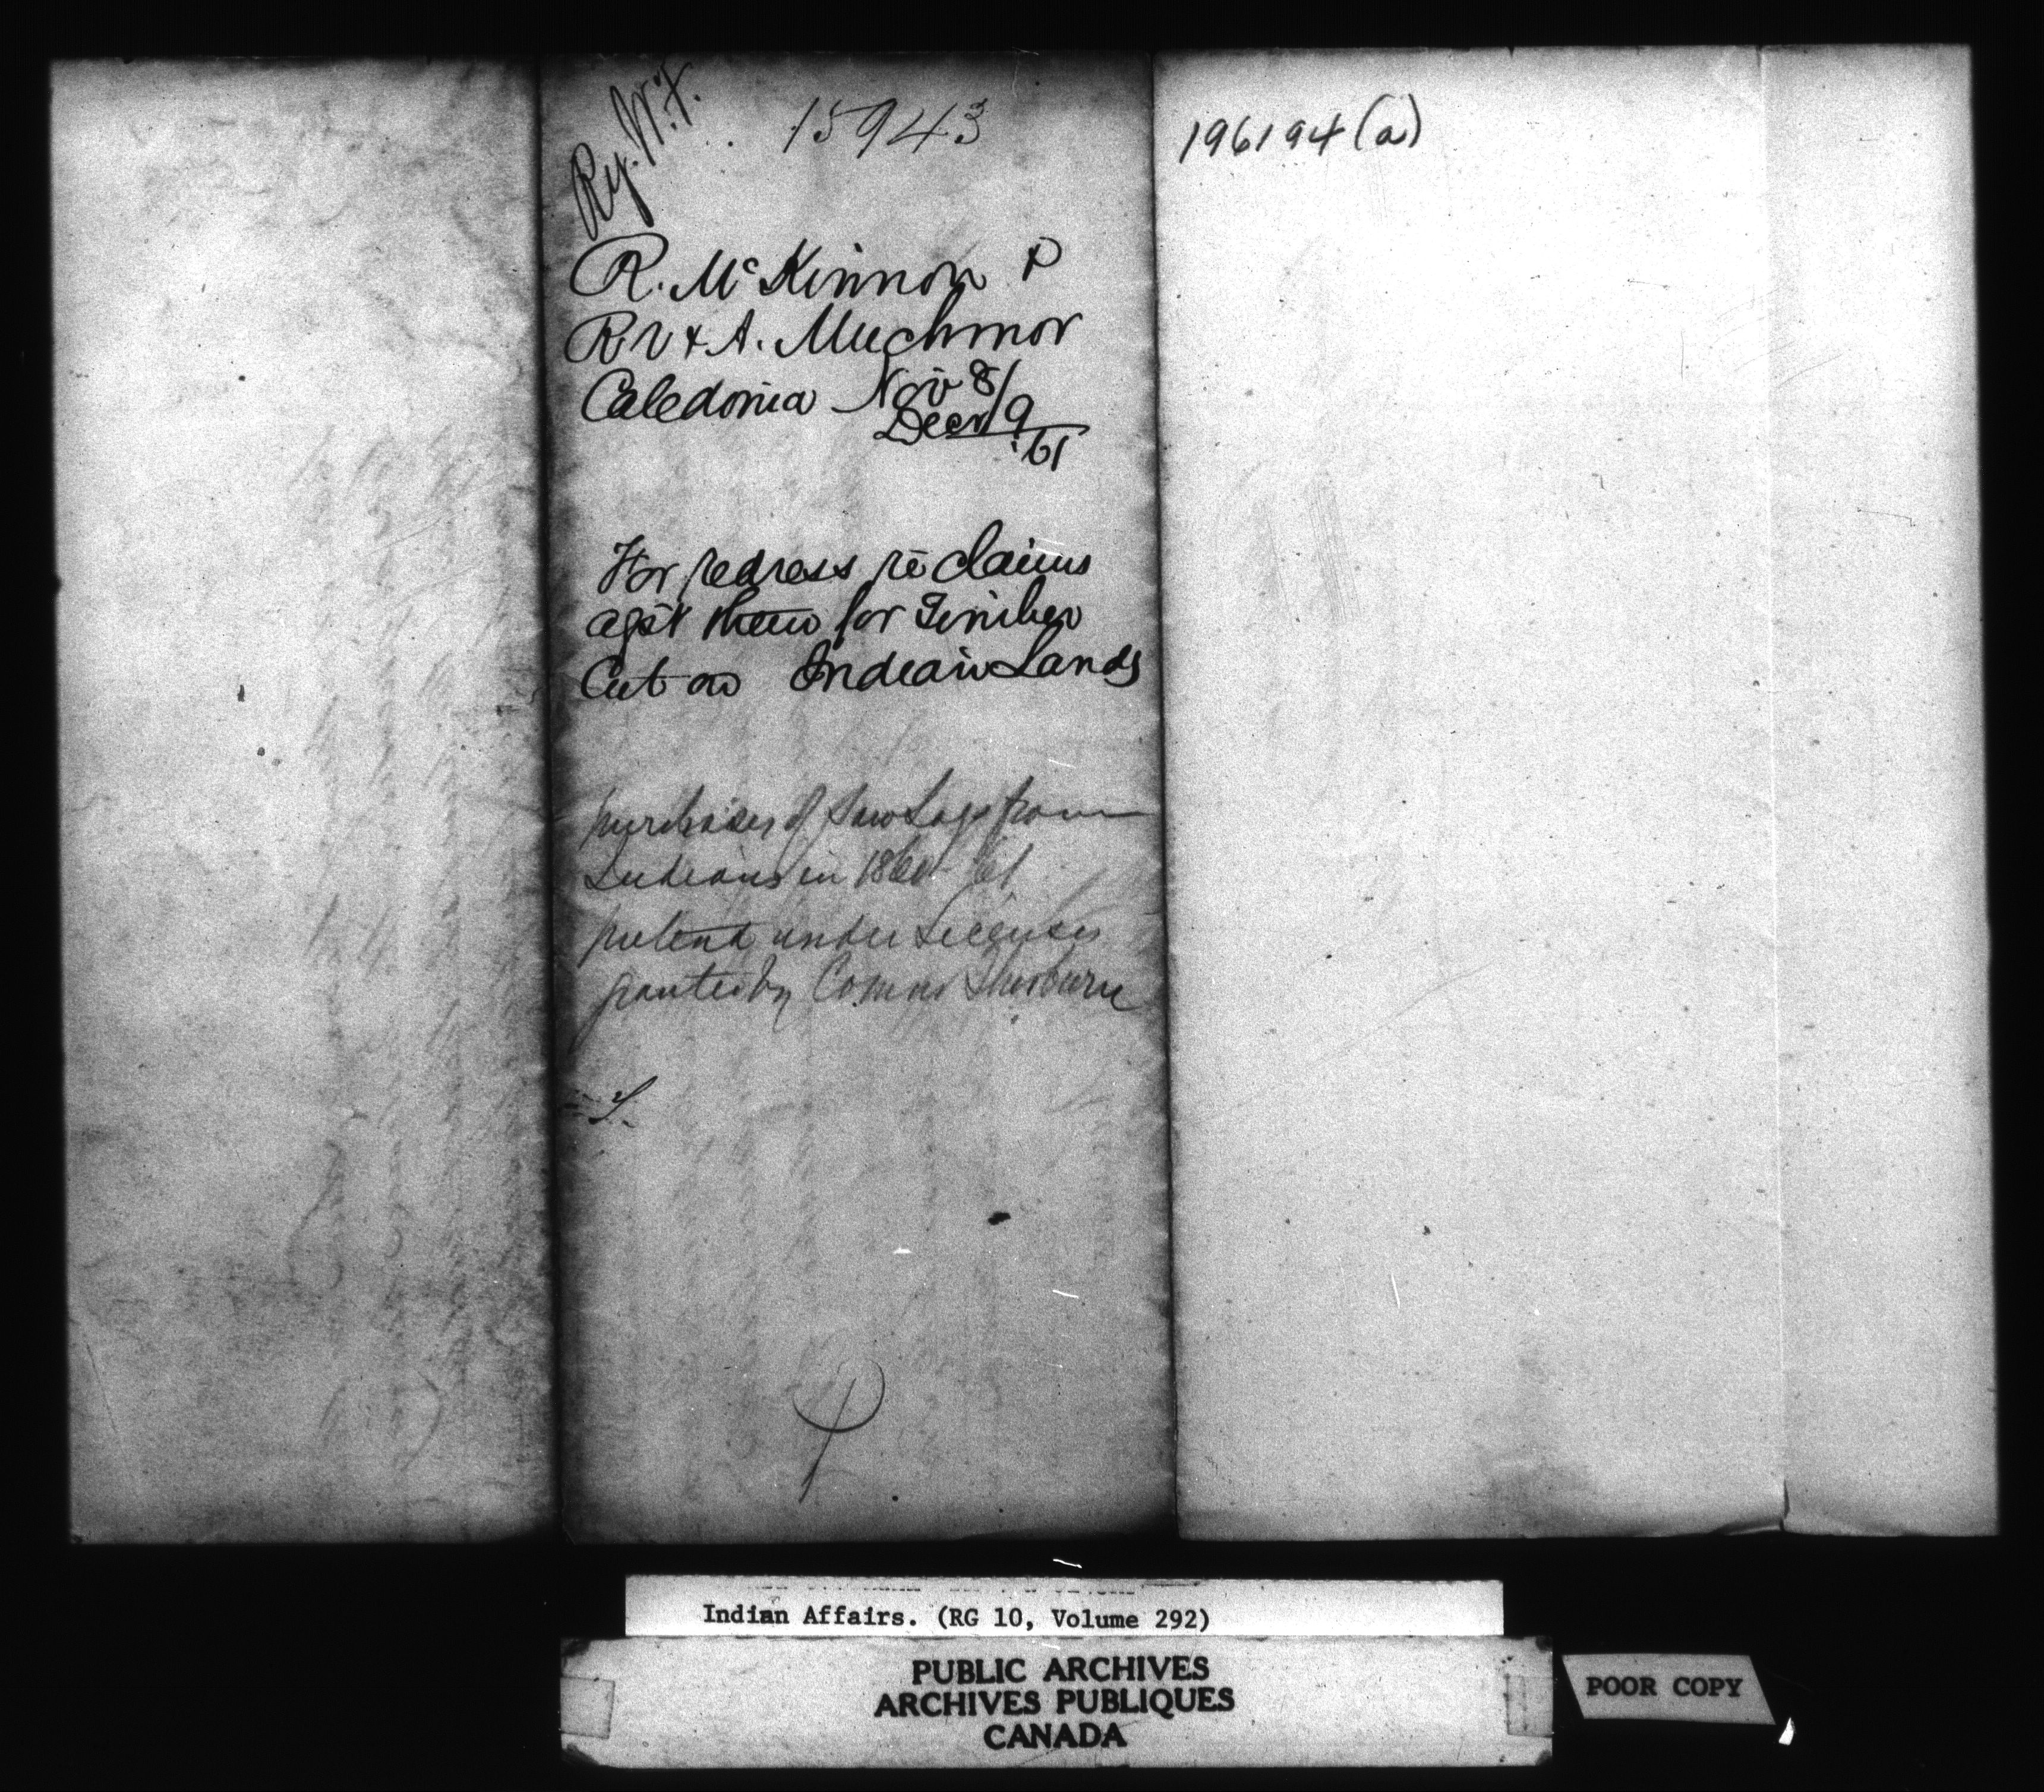 Reg. W.F.
15943
R. McKinnon &
R V & A. Muchmor
Caledonia Nov 8/
Decr 19
'61
For redress re claims
agst them for Timber
Cut on Indian Lands
purchases of Saw Logs from
Indians in 1860-61
pretend under Licenses
granted by Commr
196194 (a)
Indian Affairs. (RG 10, Volume 292)
PUBLIC ARCHIVES
ARCHIVES PUBLIQUES
CANADA
POOR COPY